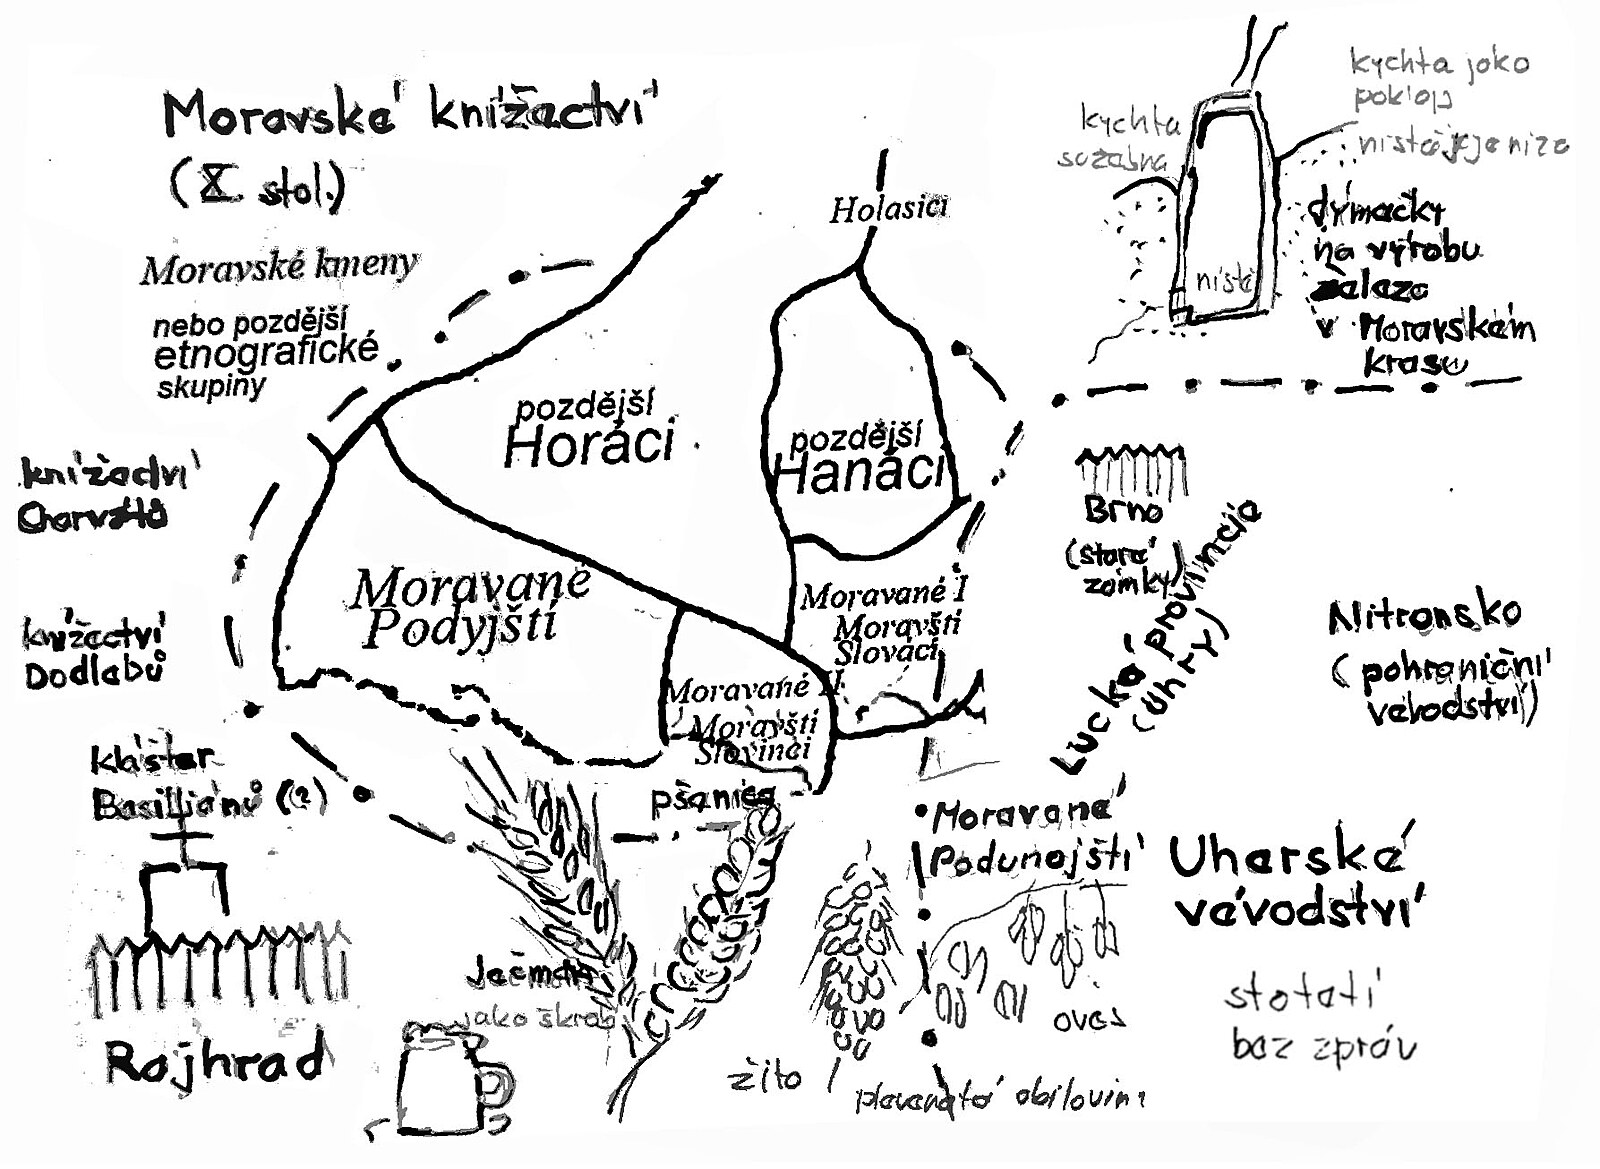 Moravské knížectví
(X stol.)
Moravské kmeny
nebo pozdější
etnografické
skupiny
knížectví
Charvátů
knížectví
Dodlebů
klášter
Basiliánů (?)
Rajhrad
Holasici
pozdější
Horáci
pozdější
Hanáci
Moravané
Podyjští
Moravané I
Moravští
Slováci
Moravané II
Moravští
Slovinci
pšenice
Ječmen
jako škrob
žito
oves
plevnaté obiloviny
Moravané
Podunajští
kychta
sazebna
kychta jako
poklop
nístěj je níže
nístěj
dýmačky
na výrobu
železa
v Moravském
krasu
Brno
(staré
zámky)
Lucká provincie
(Uhry)
Nitransko
(pohraniční
vévodství)
Uherské
vévodství
století
bez zpráv